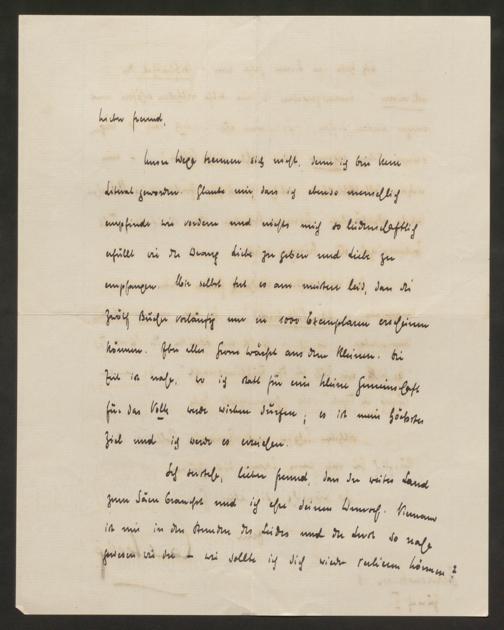 Lieber Freund,
Unsere Wege trennen sich nicht, denn ich bin kein
Literat geworden. Glaube mir, dass ich ebenso menschlich
empfinde wie vordem und nichts mich so leidenschaftlich
erfüllt wie der Drang Liebe zu geben und Liebe zu
empfangen. Mir selbst tut es am meisten leid, dass die
zwölf Bücher vorläufig nur in 1000 Exemplaren erscheinen
können. Aber alles Grosse wächst aus dem Kleinen. Die
Zeit ist nahe, wo ich statt für eine kleine Gemeinschaft
für das Volk werde wirken dürfen; es ist mein höchstes
Ziel und ich werde es erreichen.
Ich verstehe, lieber Freund, dass du weites Land
zum Säen brauchst und ich ehre deinen Unmut. Niemand
ist mir in den Stunden des Leides und der Lust so nahe
gewesen wie du – wie sollte ich dich wieder verlieren können?